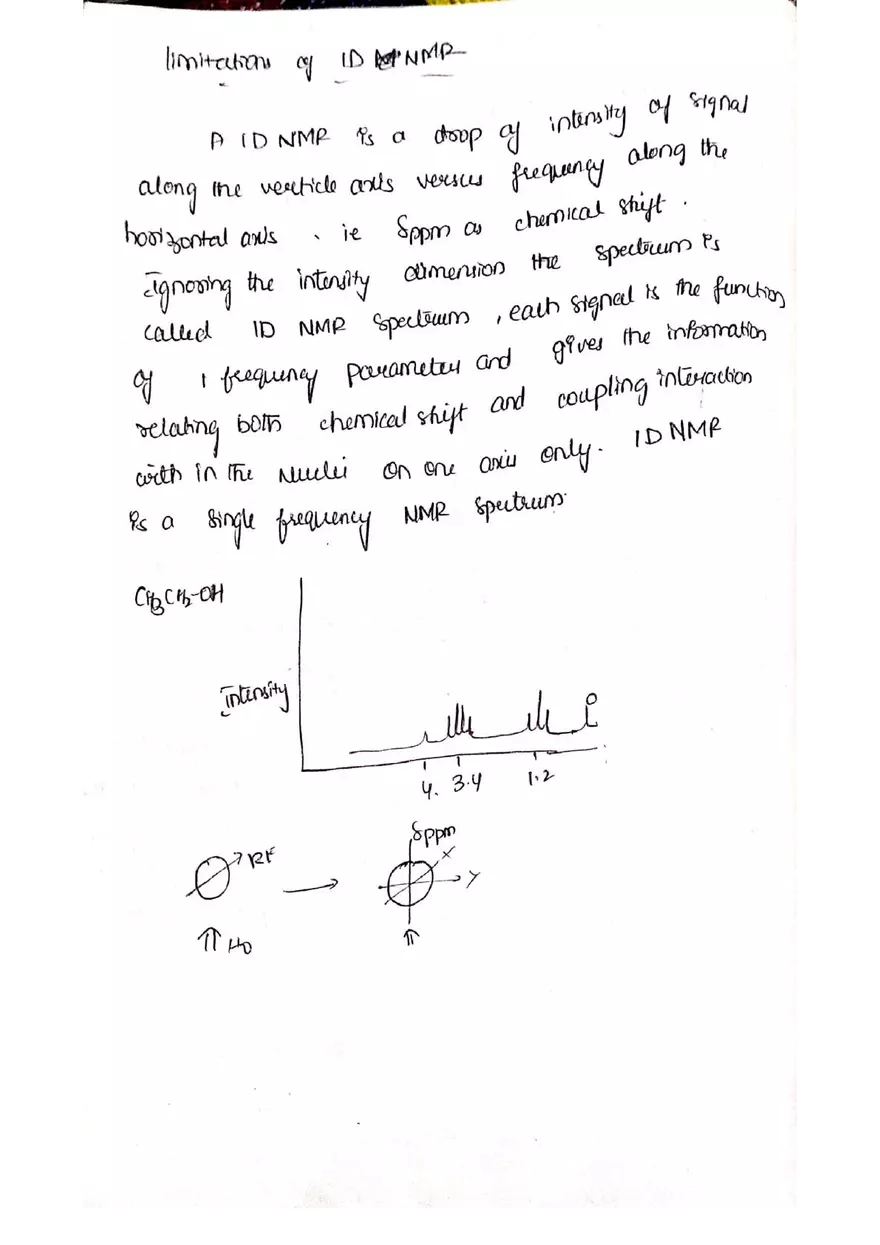 limitations of 1D NMR
A 1D NMR is a droop of intensity of signal
along the verticle axis versus frequency along the
horizontal axis, ie δppm as chemical shift.
Ignoring the intensity dimension the spectrum is
called 1D NMR spectrum, each signal is the function
of 1 frequency parameter and gives the information
relating both chemical shift and coupling interaction
with in the nuclei on one axis only. 1D NMR
is a single frequency NMR spectrum.
CH3CH2-OH
Intensity
4. 3.4 1.2
δppm
RF
X
Y
H0